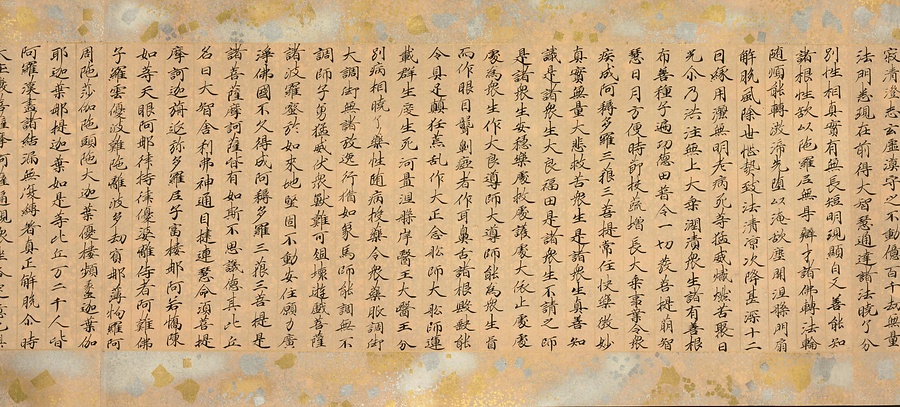 寂清澄志玄虛漠守之不動億百千劫無量
法門悉現在前得大智慧通達諸法曉了分
別性相真實有無長短明現顯白又善能知
諸根性欲以陀羅尼無㝵辯才諸佛轉法輪
隨順能轉微渧先堕以淹欲塵開涅槃門扇
解脫風除世惱熱致法清涼次降甚深十二
因緣用灑無明老病死等猛盛熾然苦聚日
光尒乃洪注無上大乘潤漬衆生諸有善根
布善種子遍功德田普令一切發菩提萌智
慧日月方便時節扶疏增長大乘事業令衆
疾成阿耨多羅三藐三菩提常住快樂微妙
真實無量大悲救苦衆生是諸衆生真善知
識是諸衆生大良福田是諸衆生不請之師
是諸衆生安穩樂處救處護處大依止處處
處為衆生作大良導師大導師能為衆生盲
而作眼目聾劓瘂者作耳鼻舌諸根毀缺能
令具足顛狂荒乱作大正念船師大船師運
載群生度生死河置涅槃岸醫王大醫王分
別病相曉了藥性随病授藥令衆藥服調御
大調御無諸放逸行猶如象馬師能調無不
調師子勇猛威伏衆獸難可俎壞遊戲菩薩
諸波羅蜜於如來地堅固不動安住願力廣
淨佛國不久得成阿耨多羅三藐三菩提是
諸菩薩摩訶薩皆有如斯不思議德其比丘
名曰大智舍利弗神通目揵連慧命須菩提
摩訶迦旃延弥多羅尼子富樓那阿若憍陳
如等天眼阿那律持律優婆離侍者阿難佛
子羅雲優波難陁離波多劫賓那薄拘羅阿
周陁莎伽陁頭陁大迦葉優樓頻螺迦葉伽
耶迦葉那提迦葉如是等比丘万二千人皆
阿羅漢盡諸結漏無復縛著真正解脫尒時